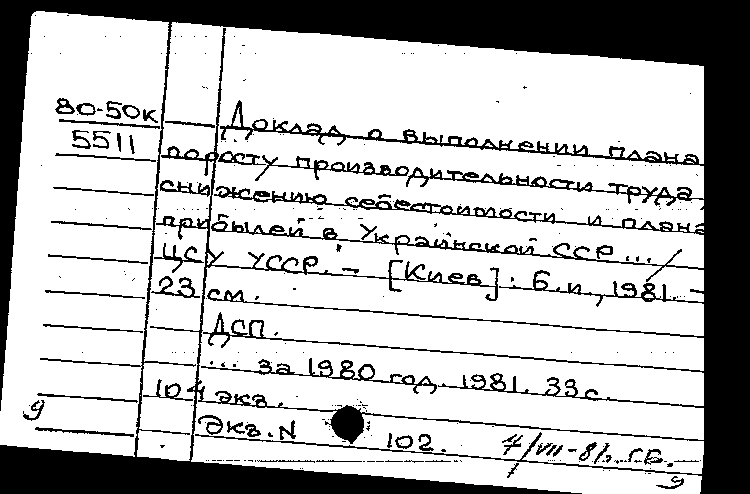 80-50к
5511
Доклад о выполнении плана
поросту производительности труда,
снижению себестоимости и плана
прибылей в Украинской ССР... /
ЦСУ УССР. - [Киев]: б.и., 1981. -
23 см.
ДСП.
... за 1980 год. 1981. 33 с.
104 экз.
Экз. N 102. 4/VII-81. ГБ.
9
9